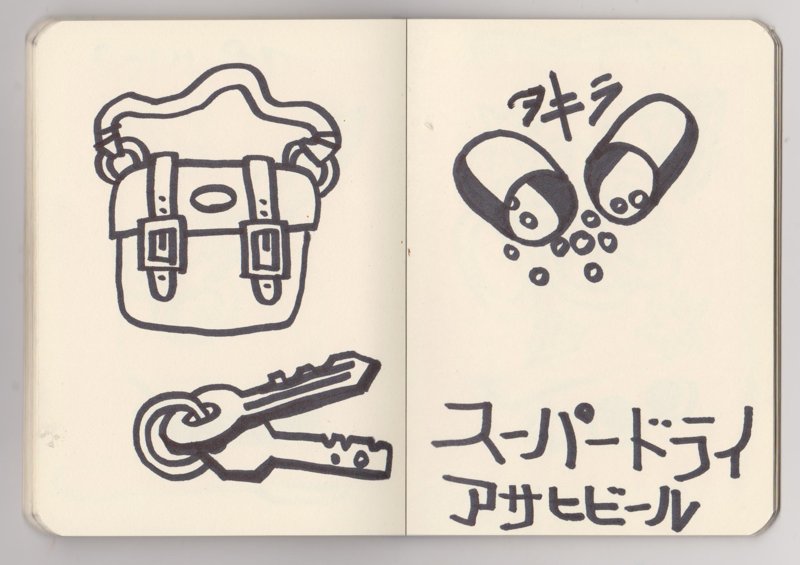 アキラ
スーパードライ
アサヒビール